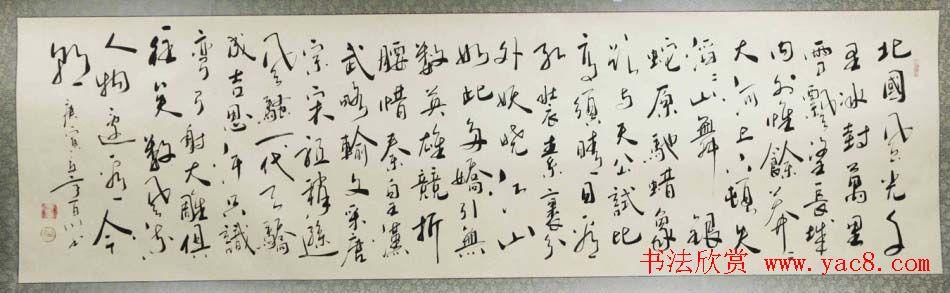 北國風光千
里冰封萬里
雪飄望長城
内外惟餘莽々
大河上下頓失
滔々山舞銀
蛇原馳蜡象
欲与天公試比
高須晴日看
紅裝素裹分
外妖嬈江山
如此多嬌引無
數英雄競折
腰惜秦皇漢
武略輸文采唐
宗宋祖稍遜
風騷一代天驕
成吉思汗只識
彎弓射大雕俱
往矣數風流
人物還看今
朝
庚寅 百川书
书法欣赏 www.yac8.com